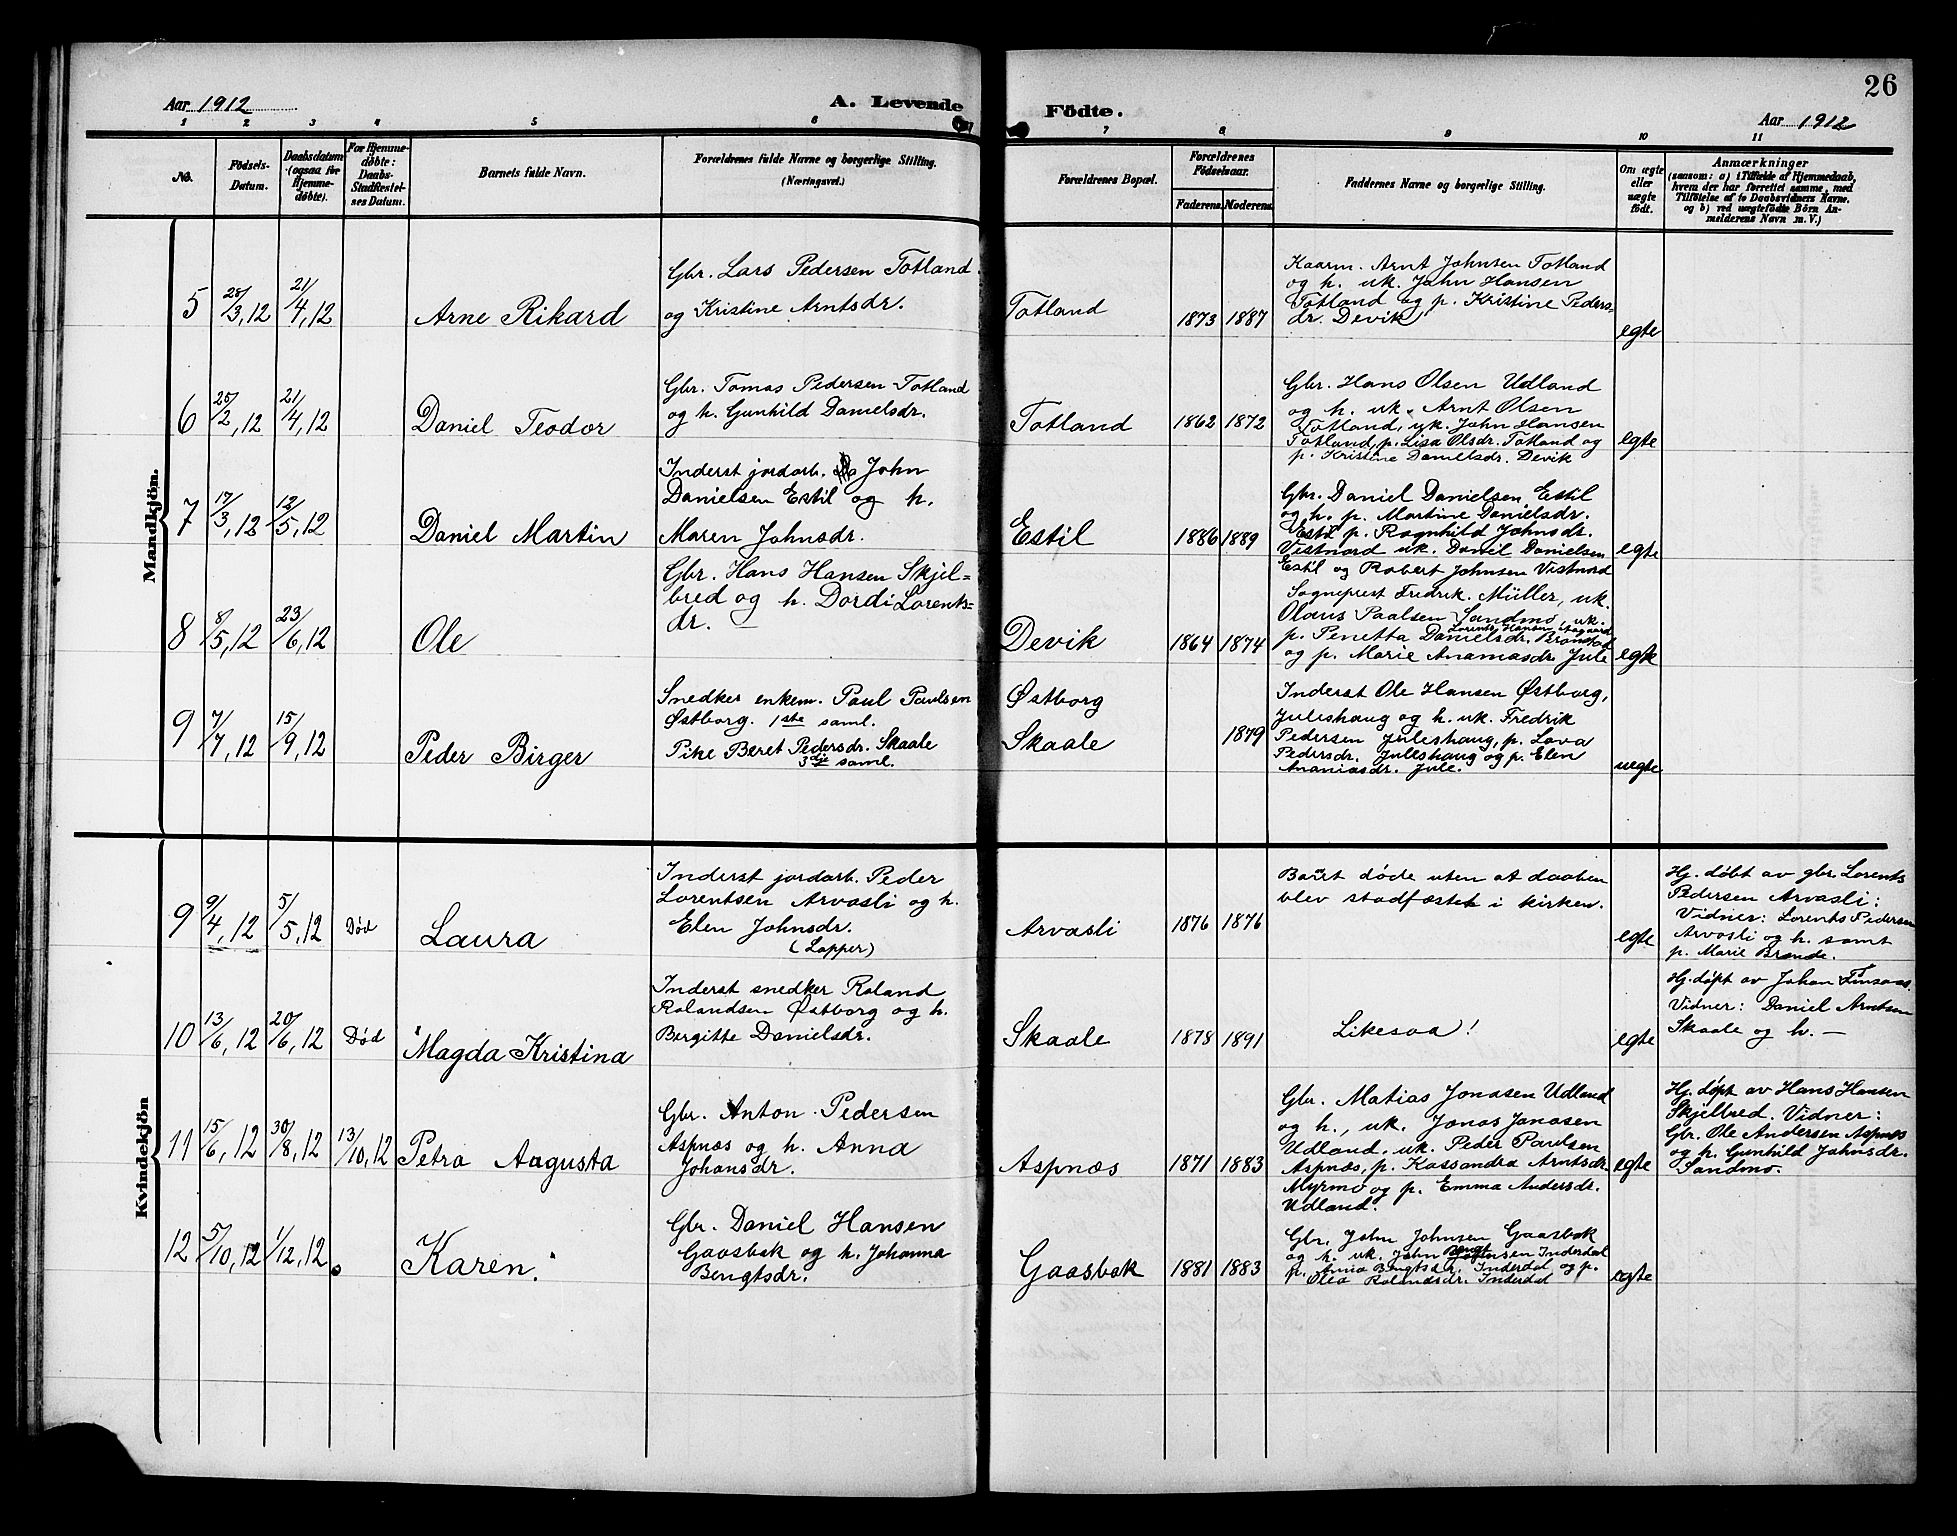 26
Aar 1912
A. Levende Födte.
Aar 1912
1 2 3 4 5 6 7 8 9 10 11
No.
Födsels-
Datum.
Daabsdatum
(ogsaa for
Hjemme-
døbte).
For Hjemme-
døbte:
Daabs-
Stadfæstel-
ses Datum.
Barnets fulde Navn.
Forældrenes fulde Navne og borgerlige Stilling.
(Næringsvei.)
Forældrenes Bopæl.
Forældrenes
Födselsaar.
Faderens.
Moderens.
Faddernes Navne og borgerlige Stilling.
Om ægte
eller
uægte
födt.
Anmærkninger
(saasom: a) i Tilfælde af Hjemmedaab,
hvem der har forrettet samme, med
Tilföielse af to Daabsvidners Navne.
og b) ved uægtefödte Börn An-
melderens Navn m. V.)
Mandkjön.
5
25/3, 12
21/4, 12
Arne Rikard
Gbr. Lars Pedersen Totland
og Kristine Arntsdr.
Totland
1873
1887
Kaarm. Arnt Johnsen Totland
og h. uk. John Hansen
Totland og p. Kristine Peders-
dr. Devik
egte
6
25/2, 12
21/4, 12
Daniel Teodor
Gbr. Tomas Pedersen Totland
og h. Gunhild Danielsdr.
Totland
1862
1872
Gbr. Hans Olsen Udland
og h. uk. Arnt Olsen
Totland, uk. John Hansen
Totland, p. Lisa Olsdr. Totland og
p. Kristine Danielsdr. Devik
egte
7
17/3, 12
12/5, 12
Daniel Martin
Inderst jordarb. John
Danielsen Estil og h.
Maren Johnsdr.
Estil
1886
1889
Gbr. Daniel Danielsen Estil
og h. p. Martine Danielsdr.
Estil p. Ragnhild Johnsdr.
Vistnord uk. Daniel Danielsen
Estil og Robert Johnsen Vistnord
egte
8
8/5, 12
23/6, 12
Ole
Gbr. Hans Hansen Skjel-
bred og h. Dordi Lorents-
dr.
Devik
1864
1874
Sogneprest Fredrik Müller, uk.
Olaus Paalsen Sandmo, uk.
Lorents Hansen
p. Penetta Danielsdr.
og p. Marie Ananiasdr. Jule
egte
9
7/7, 12
15/9, 12
Peder Birger
Snedker enkem. Paul Paulsen
Østborg. 1ste saml.
Pike Beret Pedersdr. Skaale
3dje saml.
Østborg
Skaale
1879
Inderst Ole Hansen Østborg,
Juleshaug og h. uk. Fredrik
Pedersen Juleshaug, p. Lova
Pedersdr. Juleshaug og p. Elen
Ananiasdr. Jule.
uegte
Kvindekjön
9
9/4, 12
5/5, 12
Død
Laura
Inderst jordarb. Peder
Lorentsen Arvasli og h.
Elen Johnsdr.
(Lapper)
Arvasli
1876
1876
Baret døde uten at daaben
blev stadfæstet i kirken.
egte
Hj. døbt av gbr. Lorents
Pedersen Arvasli:
Vidner: Lorents Pedersen
Arvasli og h. samt
p. Marie Brende.
10
13/6, 12
20/6, 12
Død
Magda Kristina
Inderst snedker Roland
Rolandsen Østborg og h.
Bergitte Danielsdr.
Skaale
1878
1891
Likesaa!
egte
Hj. døpt av Johan Finsaas.
Vidner: Daniel Arntsen
Skaale og h. —
11
15/6, 12
30/8, 12
13/10, 12
Petra Augusta
Gbr. Anton Pedersen
Aspnæs og h. Anna
Johansdr.
Aspnæs
1871
1883
Gbr. Matias Jonasen Udland
og h., uk. Jonas Jonasen
Udland, uk. Peder Paulsen
Aspnæs, p. Kassandra Arntsdr.
Myrmo og p. Emma Andersdr.
Udland.
egte
Hj. døpt av Hans Hansen
Skjelbred. Vidner:
Gbr. Ole Andersen Aspnæs
og h. Gunhild Johnsdr.
Sandmo.
12
5/10, 12
1/12, 12
Karen.
Gbr. Daniel Hansen
Gaasbak og h. Johanna
Bengtsdr.
Gaasbak
1881
1883
Gbr. John Johnsen Gaasbak
og h. uk. John Bengtsen Inderdal
p. Anna Bengtsdr. Inderdal og p.
Olea Rolandsdr. Inderdal
egte